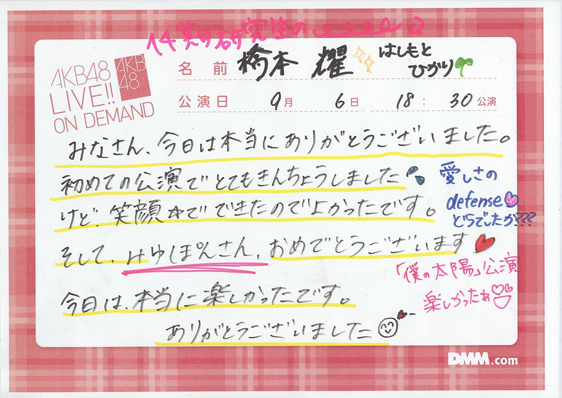 14期研究生の
AKB48
LIVE!!
ON DEMAND
AKB
48
名 前 橋本 耀 はしもと
ひかり
公演日 9月 6日 18:30公演
みなさん、今日は本当にありがとうございました。
初めての公演でとてもきんちょうしました
けど、笑顔でできたのでよかったです。
そして、みゆぽんさん、おめでとうございます
今日は、本当に楽しかったです。
ありがとうございました
愛しさの
defense
どうでしたか???
「僕の太陽」公演
楽しかったね
DMM.com